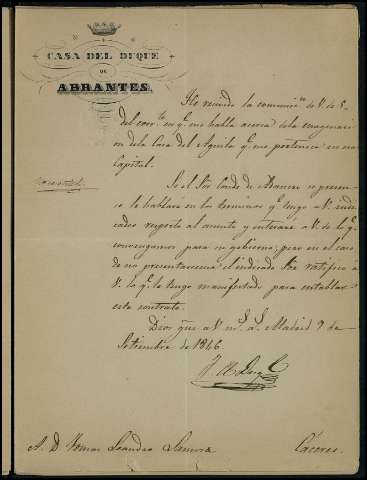 CASA DEL DUQUE
DE
ABRANTES.
He recivido la comunicon. de V. de 5
del corrte. en q. me habla acerca de la enagenacion
de la Casa del Aguila q. me pertenece en esa
Capital.
Si el Sor. Conde de se presenta
le hablaré en los terminos q. tengo a V. indicados
respecto al asunto y enteraré a V. de lo q.
convengamos para su gobierno; pero en el caso
de no presentarseme el indicado Sor. ratifico a
V. lo q. le tengo manifestado para entablar
este contrato.
Dios gue. a V. ms. as. Madrid 9 de
Setiembre de 1846.
A. D. Tomas Leandro
Cáceres.